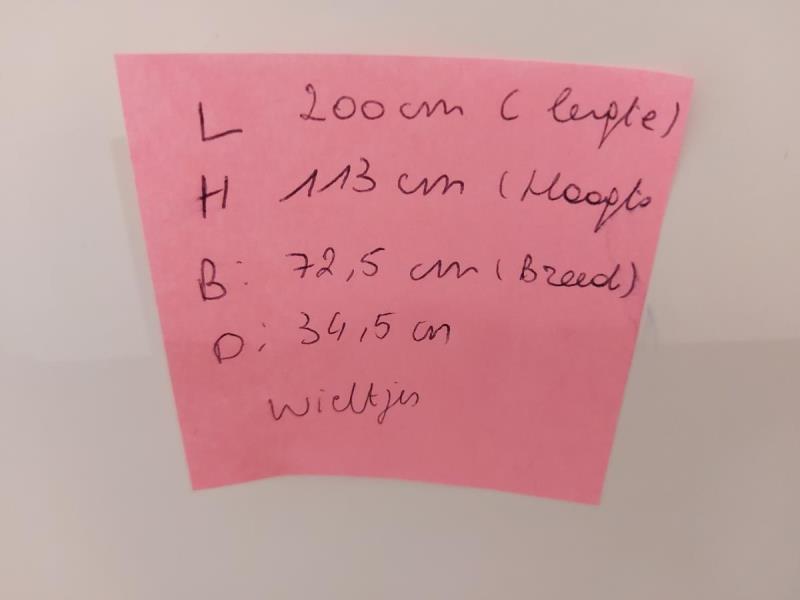 L 200 cm (lengte)
H 113 cm (Hoogte
B: 72,5 cm (Breed)
D: 34,5 cm
wieltjes